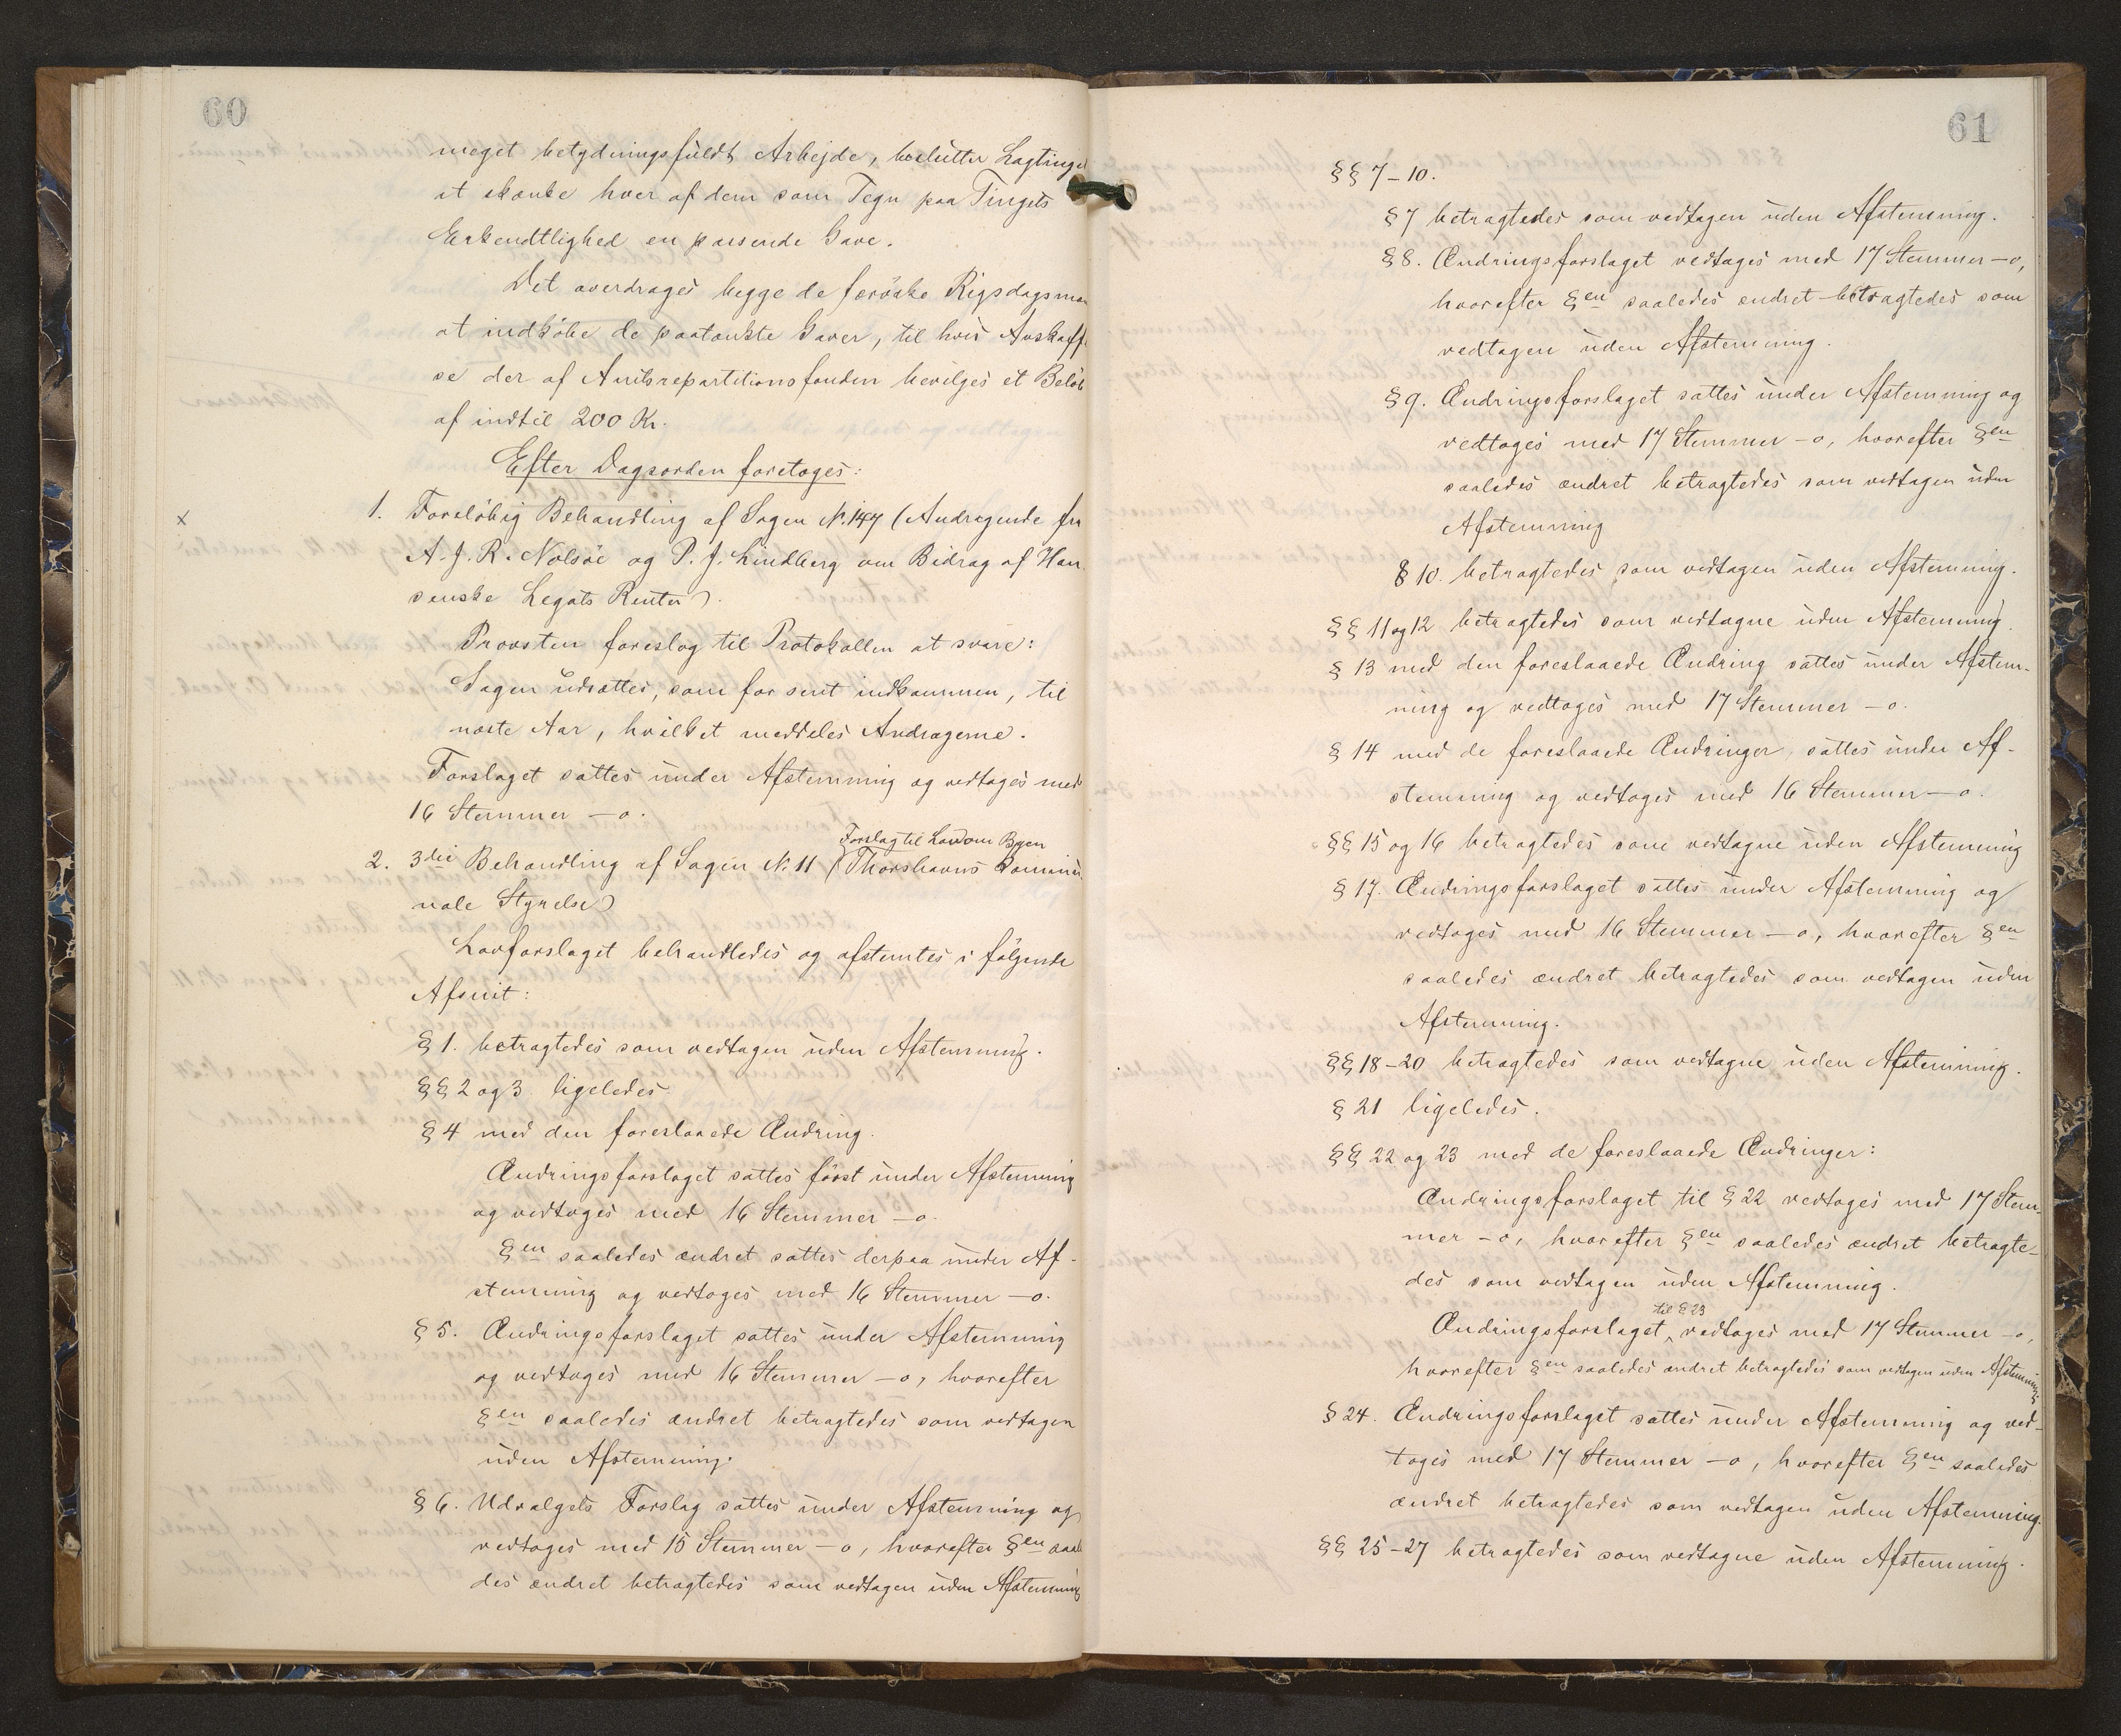 60
meget betydningsfuldt Arbejde, beslutter Lagtinget
at skænke hver af dem som Tegn paa Tingets
Erkendtlighed en passende Gave.
Det overdrages begge de færöske Rigsdagsmæ
at indköbe de paatænkte Gaver, til hvis Anskaff
se der af Amtsrepartitionsfonden bevilges et Belöb
af indtil 200 Kr.
Efter Dagsorden foretoges:
x 1. Foreløbig Behandling af Sagen N. 147 (Andragende fra
A. J. R. Nolsöe og P. J. Lindberg om Bidrag af Han
senske Legats Renter).
Provsten foreslog til Protokollen at svare:
Sagen udsættes, som for sent indkommen, til
næste Aar, hvilket meddeles Andragerne.
Forslaget sattes under Afstemning og vedtoges med
16 Stemmer – 0.
Forslag til Lov om Byen
2. 3die Behandling af Sagen N. 11 (Thorshavns Kommu
nale Styrelse)
Lovforslaget behandledes og afstemtes i følgende
Afsnit:
§ 1. betragtedes som vedtagen uden Afstemning.
§§ 2 og 3. ligeledes
§ 4 med den foreslaaede Ændring.
Ændringsforslaget sattes først under Afstemning
og vedtoges med 16 Stemmer – 0.
§en saaledes ændret sattes derpaa under Af-
stemning og vedtoges med 16 Stemmer – 0.
§ 5. Ændringsforslaget sattes under Afstemning
og vedtoges med 16 Stemmer – 0, hvorefter
§en saaledes ændret betragtedes som vedtagen
uden Afstemning.
§ 6. Udvalgets Forslag sattes under Afstemning og
vedtoges med 15 Stemmer – 0, hvorefter §en saale
des ændret betragtedes som vedtagen uden Afstemning
61
§§ 7–10.
§ 7 betragtedes som vedtagen uden Afstemning.
§ 8. Ændringsforslaget vedtoges med 17 Stemmer – 0,
hvorefter §en saaledes ændret betragtedes som
vedtagen uden Afstemning.
§ 9. Ændringsforslaget sattes under Afstemning og
vedtoges med 17 Stemmer – 0, hvorefter §en
saaledes ændret betragtedes som vedtagen uden
Afstemning
§ 10. betragtedes som vedtagen uden Afstemning.
§§ 11 og 12 betragtedes som vedtagne uden Afstemning.
§ 13 med den foreslaaede Ændring sattes under Afstem-
ning og vedtoges med 17 Stemmer – 0.
§ 14 med de foreslaaede Ændringer, sattes under Af-
stemning og vedtoges med 16 Stemmer – 0.
§§ 15 og 16 betragtedes som vedtagne uden Afstemning
§ 17. Ændringsforslaget sattes under Afstemning og
vedtoges med 16 Stemmer – 0, hvorefter §en
saaledes ændret betragtedes som vedtagen uden
Afstemning.
§§ 18–20 betragtedes som vedtagne uden Afstemning.
§ 21 ligeledes.
§§ 22 og 23 med de foreslaaede Ændringer:
Ændringsforslaget til § 22 vedtoges med 17 Stem-
mer – 0, hvorefter §en saaledes ændret betragte-
des som vedtagen uden Afstemning.
til § 23
Ændringsforslaget vedtoges med 17 Stemmer – 0,
hvorefter §en saaledes ændret betragtedes som vedtagen uden Afstemning.
§ 24. Ændringsforslaget sattes under Afstemning og ved-
toges med 17 Stemmer – 0, hvorefter §en saaledes
ændret betragtedes som vedtagen uden Afstemning.
§§ 25–27 betragtedes som vedtagne uden Afstemning.